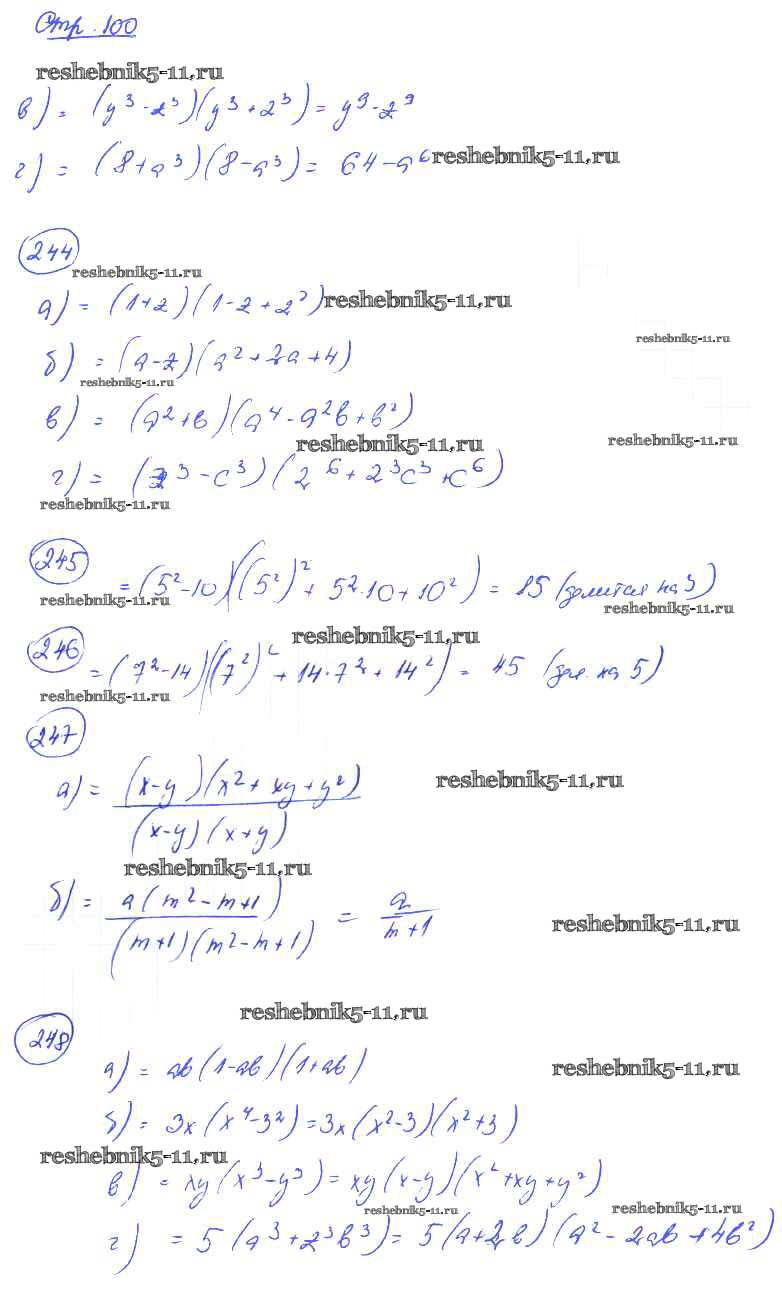 Стр. 100
reshebnik5-11.ru
в) = (y³ - z³)(y³ + z³) = y⁹ - z⁹
г) = (8 + a³)(8 - a³) = 64 - a⁶ reshebnik5-11.ru
244
reshebnik5-11.ru
а) = (1 + z)(1 - z + z²) reshebnik5-11.ru
reshebnik5-11.ru
б) = (a - 2)(a² + 2a + 4)
reshebnik5-11.ru
в) = (a² + b)(a⁴ - a²b + b²)
reshebnik5-11.ru reshebnik5-11.ru
г) = (2³ - c³)(2⁶ + 2³c³ + c⁶)
reshebnik5-11.ru
245
= (5² - 10)((5²)² + 5²·10 + 10²) = 15 (делится на 3)
reshebnik5-11.ru reshebnik5-11.ru
reshebnik5-11.ru
246
= (7² - 14)((7²)² + 14·7² + 14²) = 45 (дел. на 5)
reshebnik5-11.ru
247
а) = (x - y)(x² + xy + y²) reshebnik5-11.ru
(x - y)(x + y)
reshebnik5-11.ru
б) = a(m² - m + 1) = a
(m + 1)(m² - m + 1) m + 1
reshebnik5-11.ru
reshebnik5-11.ru
248
а) = ab(1 - ab)(1 + ab) reshebnik5-11.ru
б) = 3x(x⁴ - 3²) = 3x(x² - 3)(x² + 3)
reshebnik5-11.ru
в) = xy(x³ - y³) = xy(x - y)(x² + xy + y²)
reshebnik5-11.ru reshebnik5-11.ru
г) = 5(a³ + 2³b³) = 5(a + 2b)(a² - 2ab + 4b²)